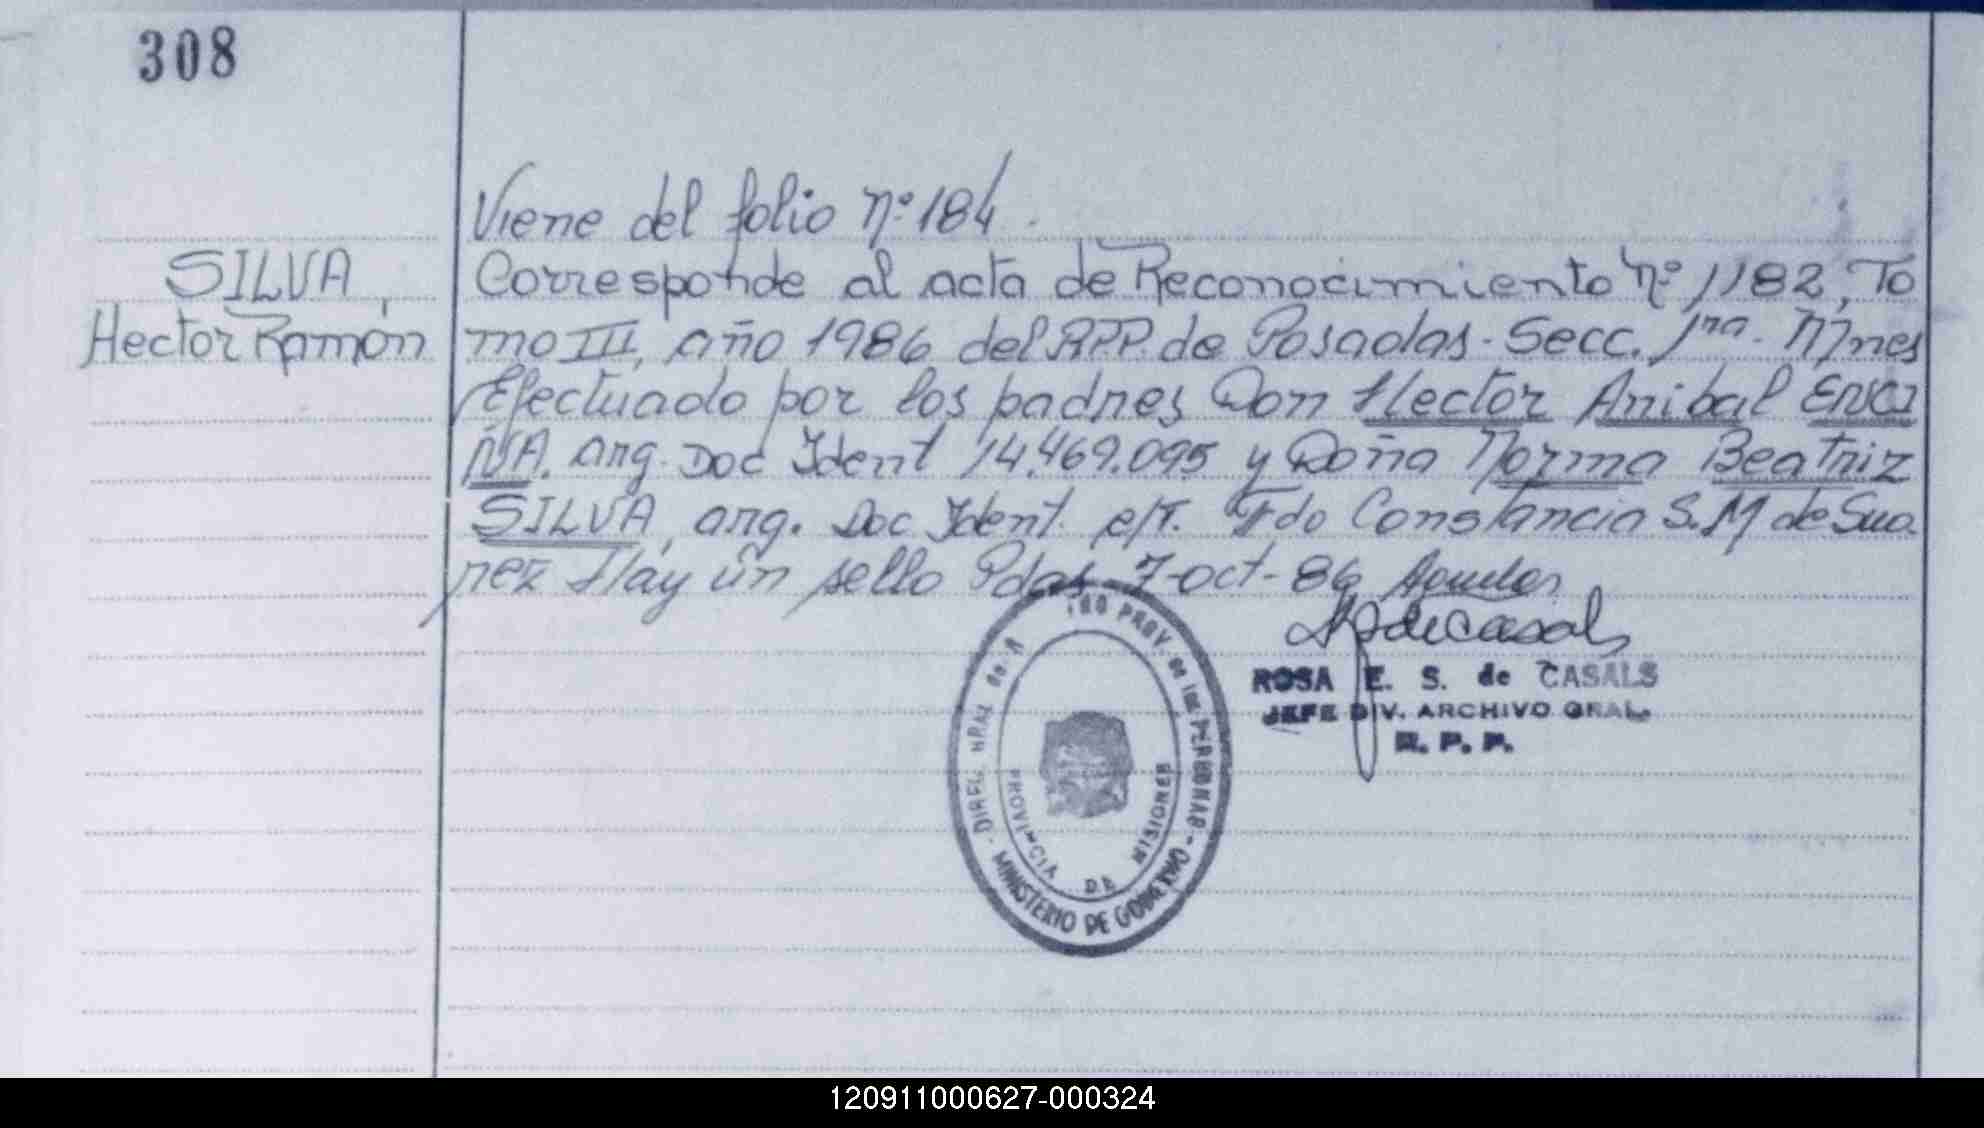 308
Viene del folio Nº 184.
SILVA,
Hector Ramón
Corresponde al acta de Reconocimiento Nº 1182, To
mo III, año 1986 del RPP. de Posadas - Secc. 1ra. Mnes
Efectuado por los padres Don Hector Anibal ENCI
NA. arg. Doc Ident 14.469.095 y Doña Norma Beatriz
SILVA, arg. Doc Ident. e/t. Fdo Constancia S. M de Sua
rez Hay un sello Pdas, 7-oct-86
ROSA E. S. de CASALS
JEFE DIV. ARCHIVO GRAL.
R. P. P.
PROV. de las PERSONAS - MINISTERIO DE GOBIERNO -
PROVINCIA DE MISIONES
120911000627-000324